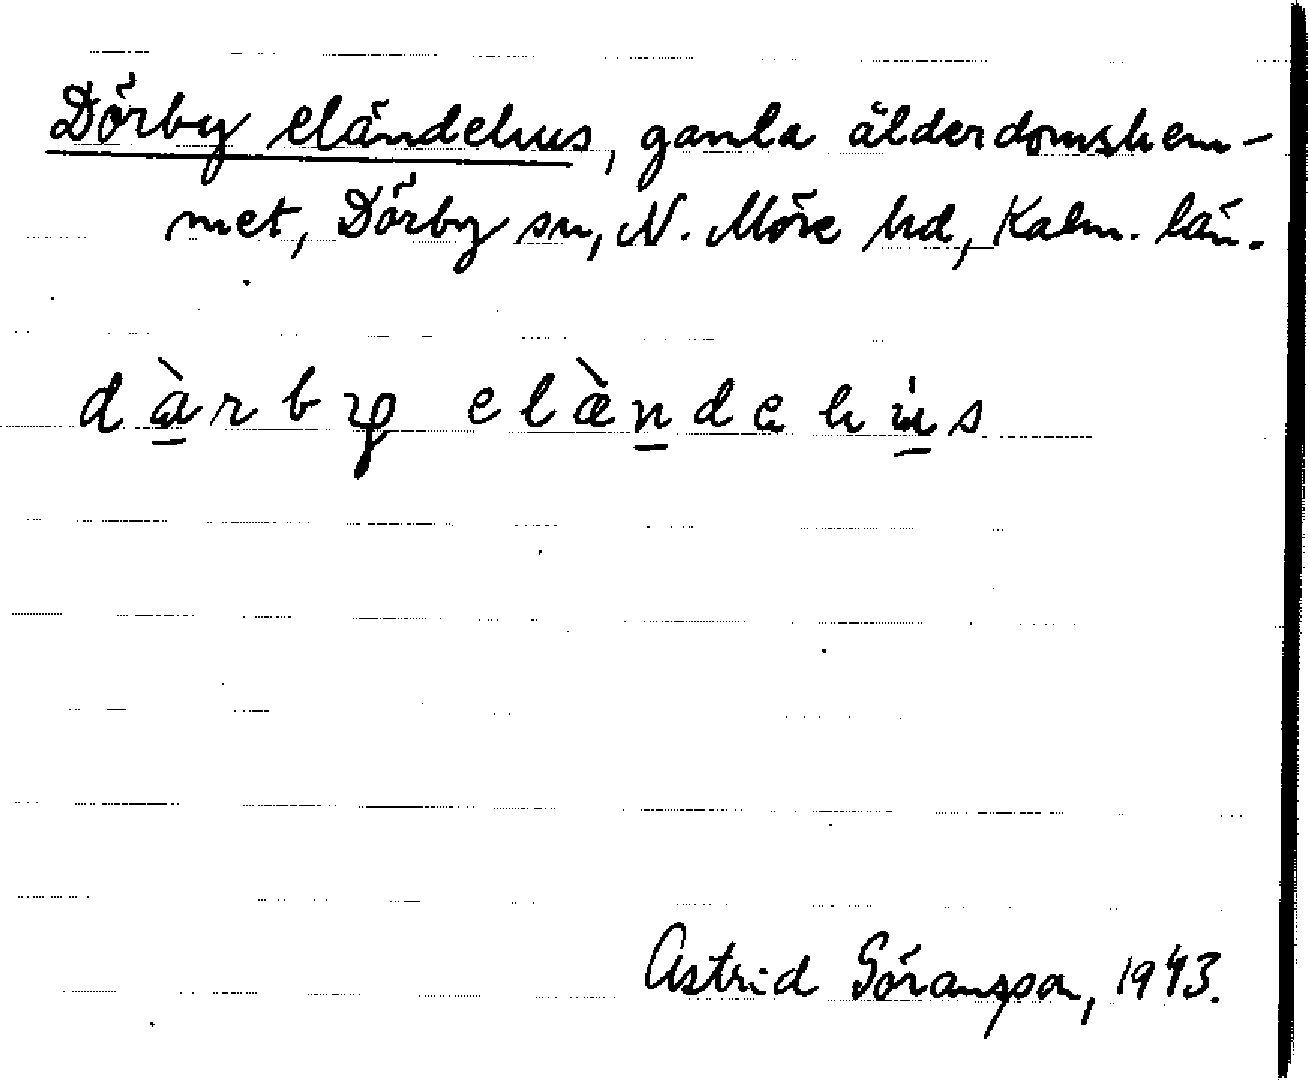 Dörby eländehus, gamla ålderdomshem-
met, Dörby sn, N. Möre hd, Kalm. län.
dàrby elàndehus
Astrid Göransson, 1943.